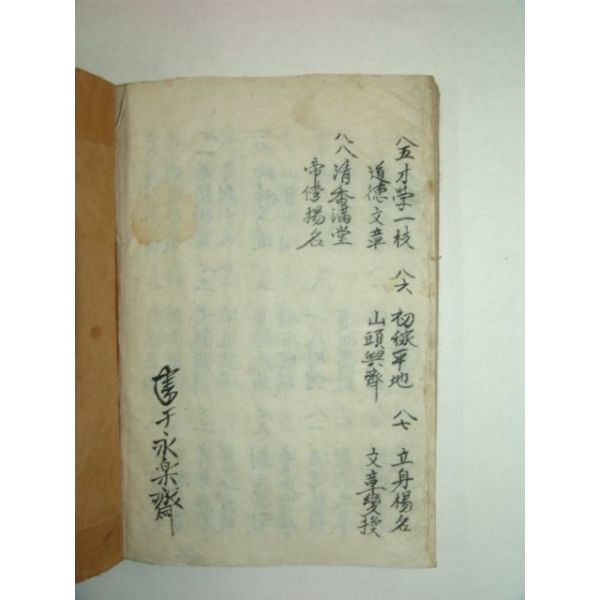 八五 才学一枝 八六 初平地 八七 立身揚名
道德文章 山頭與齊 文章變換
八八 清香满堂
帝傍揚名
書于永楽齋